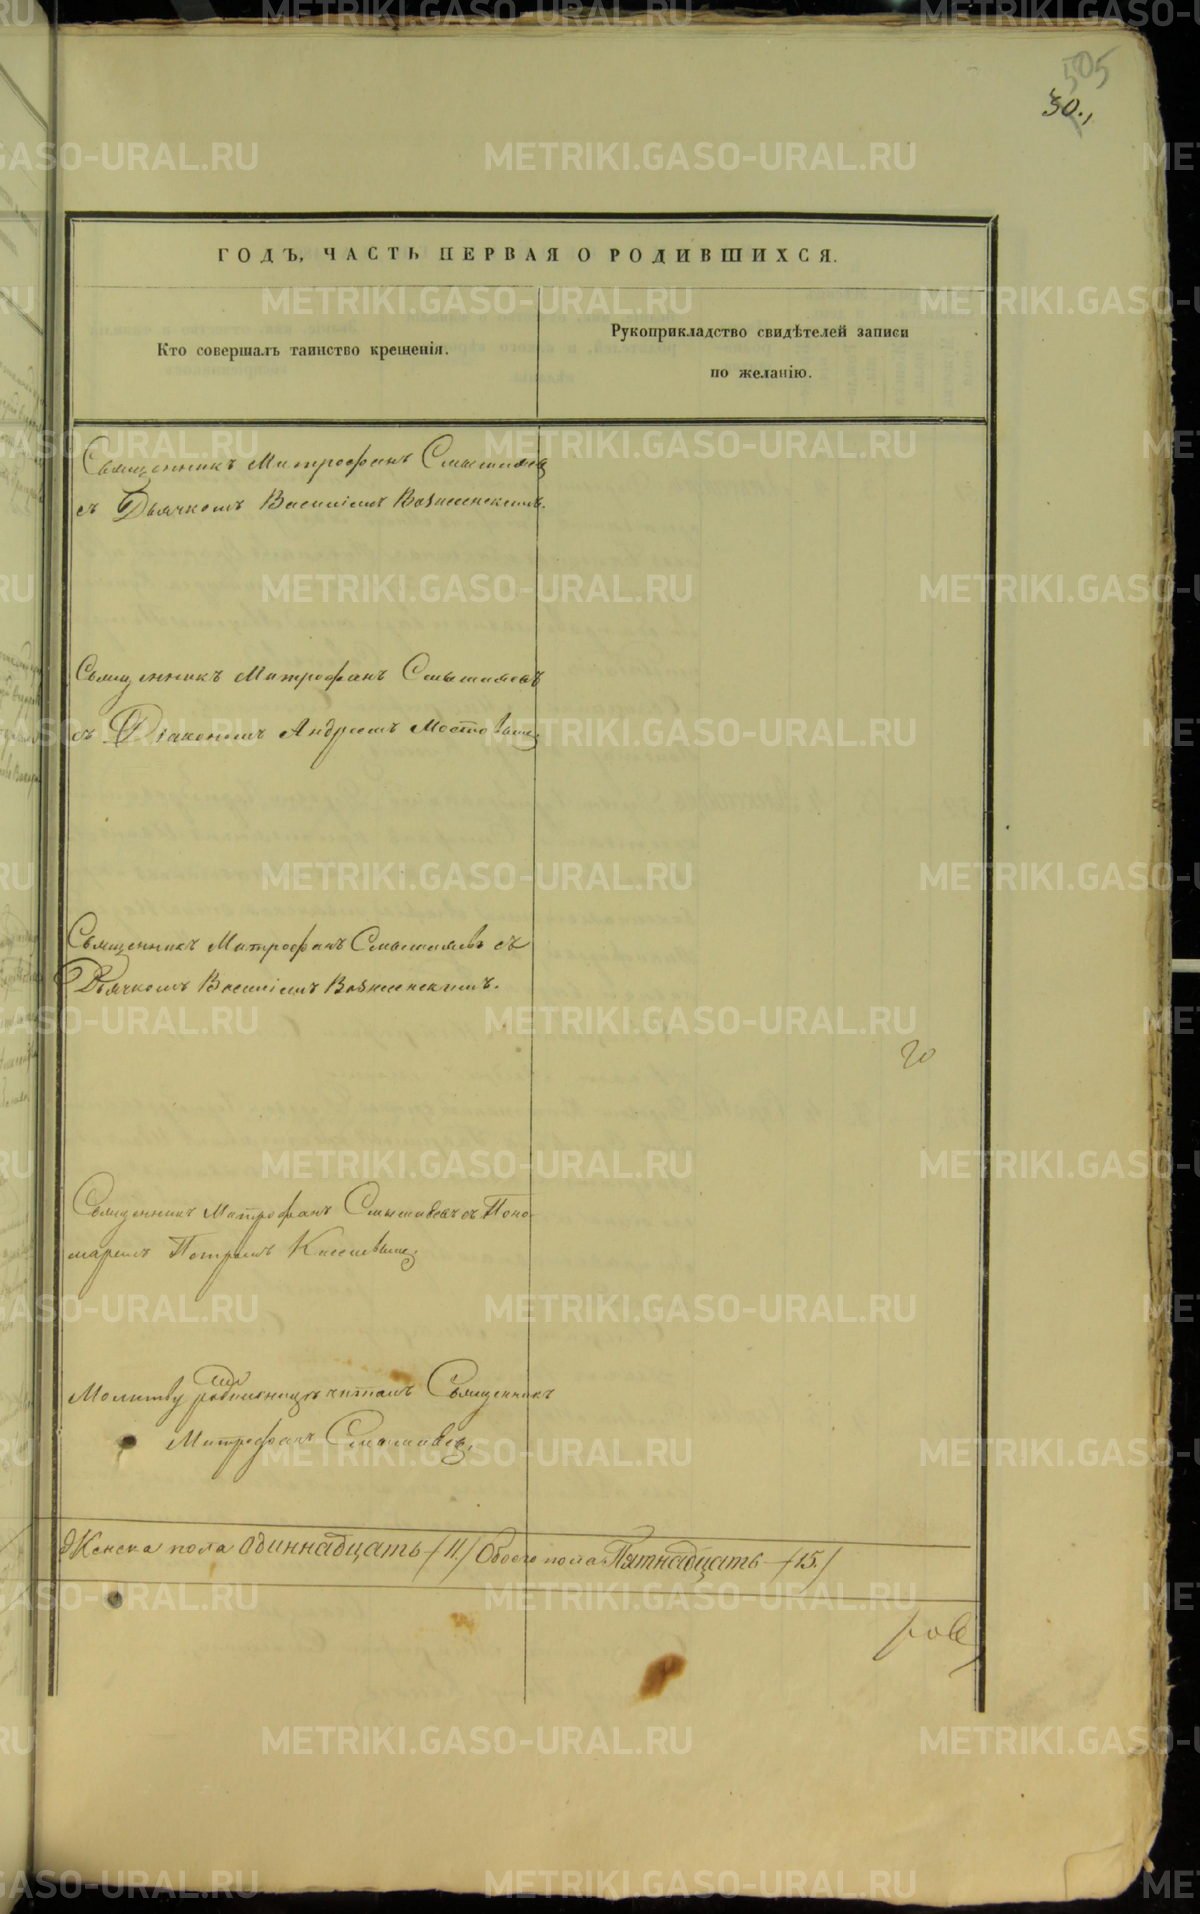 505
30.
ГОДЪ, ЧАСТЬ ПЕРВАЯ О РОДИВШИХСЯ.
Кто совершалъ таинство крещенія.
Рукоприкладство свидѣтелей записи
по желанію.
Священникъ Митрофанъ Смышляевъ
съ Дьячкомъ Василіемъ Вознесенскимъ.
Священникъ Митрофанъ Смышляевъ
съ Діакономъ Андреемъ Мостовымъ.
Священникъ Митрофанъ Смышляевъ съ
Дьячкомъ Василіемъ Вознесенскимъ.
Священникъ Митрофанъ Смышляевъ съ Поно
маремъ Петромъ
Молитву родильницѣ читалъ Священникъ
Митрофанъ Смышляевъ.
Женска пола Одиннадцать /11./ Обоего пола Пятнадцать /15./
METRIKI.GASO-URAL.RU